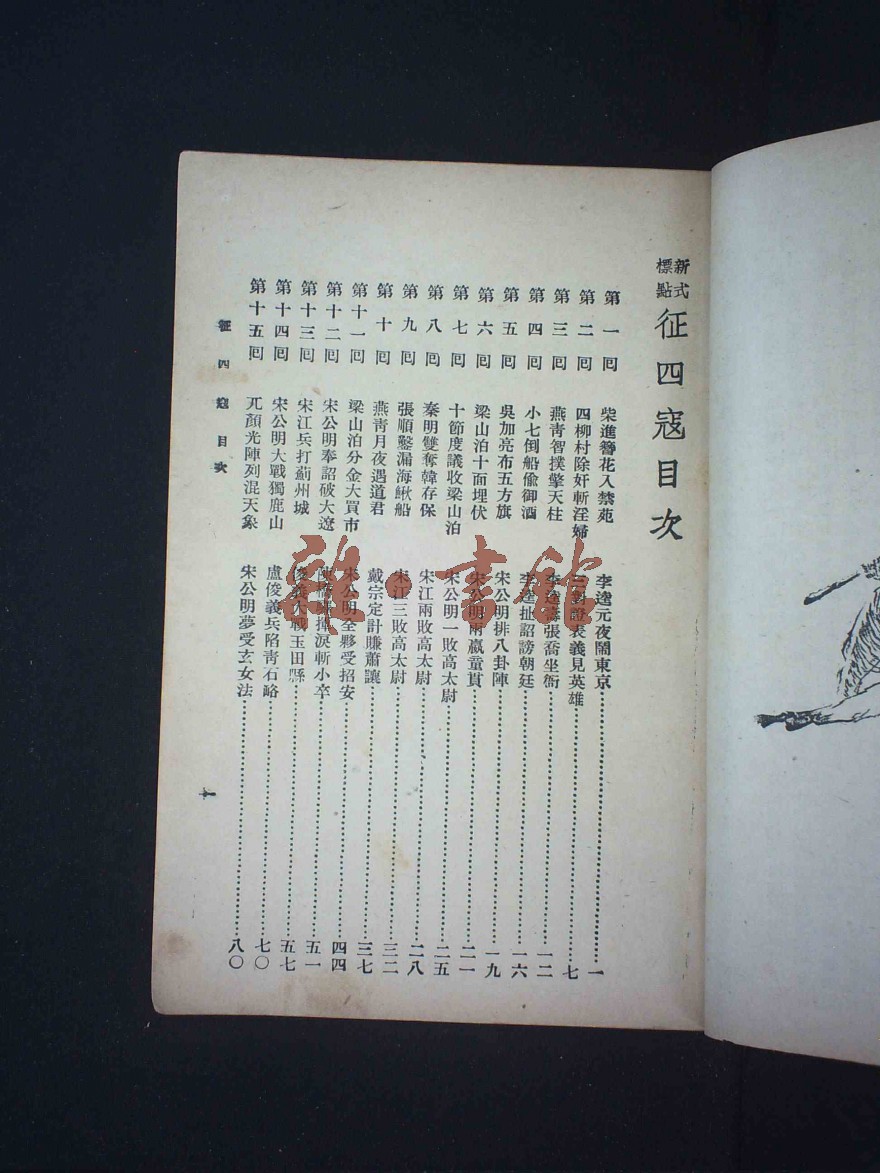 新式標點 征四寇目次
第一囘 柴進簪花入禁苑 李逵元夜鬧東京 一
第二囘 四柳村除奸斬淫婦 對證表義見英雄 七
第三囘 燕靑智撲擎天柱 李逵壽張喬坐衙 一二
第四囘 小七倒船偸御酒 李逵扯詔謗朝廷 一六
第五囘 吳加亮布五方旗 宋公明排八卦陣 一九
第六囘 梁山泊十面埋伏 宋公明兩贏童貫 二一
第七囘 十節度議收梁山泊 宋公明一敗高太尉 二五
第八囘 秦明雙奪韓存保 宋江兩敗高太尉 二八
第九囘 張順鑿漏海鰍船 宋江三敗高太尉 三二
第十囘 燕靑月夜遇道君 戴宗定計賺蕭讓 三七
第十一囘 梁山泊分金大買市 宋公明全夥受招安 四四
第十二囘 宋公明奉詔破大遼 陳橋驛揮淚斬小卒 五一
第十三囘 宋江兵打薊州城 俊義大戰玉田縣 五七
第十四囘 宋公明大戰獨鹿山 盧俊義兵陷靑石峪 七〇
第十五囘 兀顏光陣列混天象 宋公明夢受玄女法 八〇
征四寇目次
雜·書館